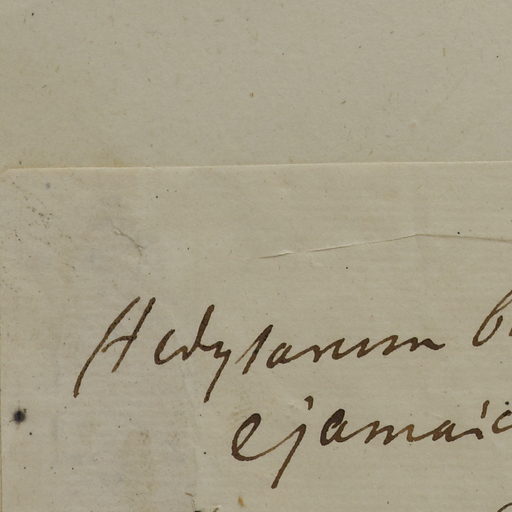 Hedysarum
e jamaic